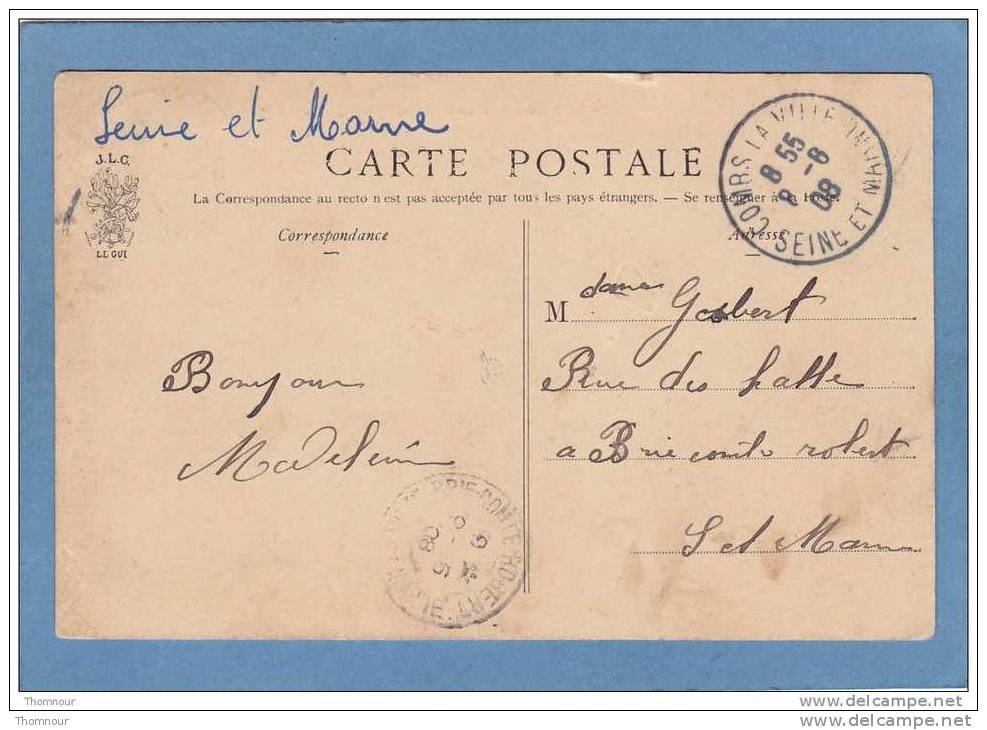 Seine et Marne
J.L.C.
LE GUI
CARTE POSTALE
La Correspondance au recto n'est pas acceptée par tous les pays étrangers. — Se renseigner à la Poste.
Correspondance
Adresse
COMBS LA VILLE
8 55
8 -6
08
SEINE ET MARNE
Mdame Gobert
Rue des halle
a Brie comte robert
S et Marne
Bonjour
Madeleine
BRIE-COMTE-ROBERT
Thomnour
Thomnour
www.delcampe.net
www.delcampe.net